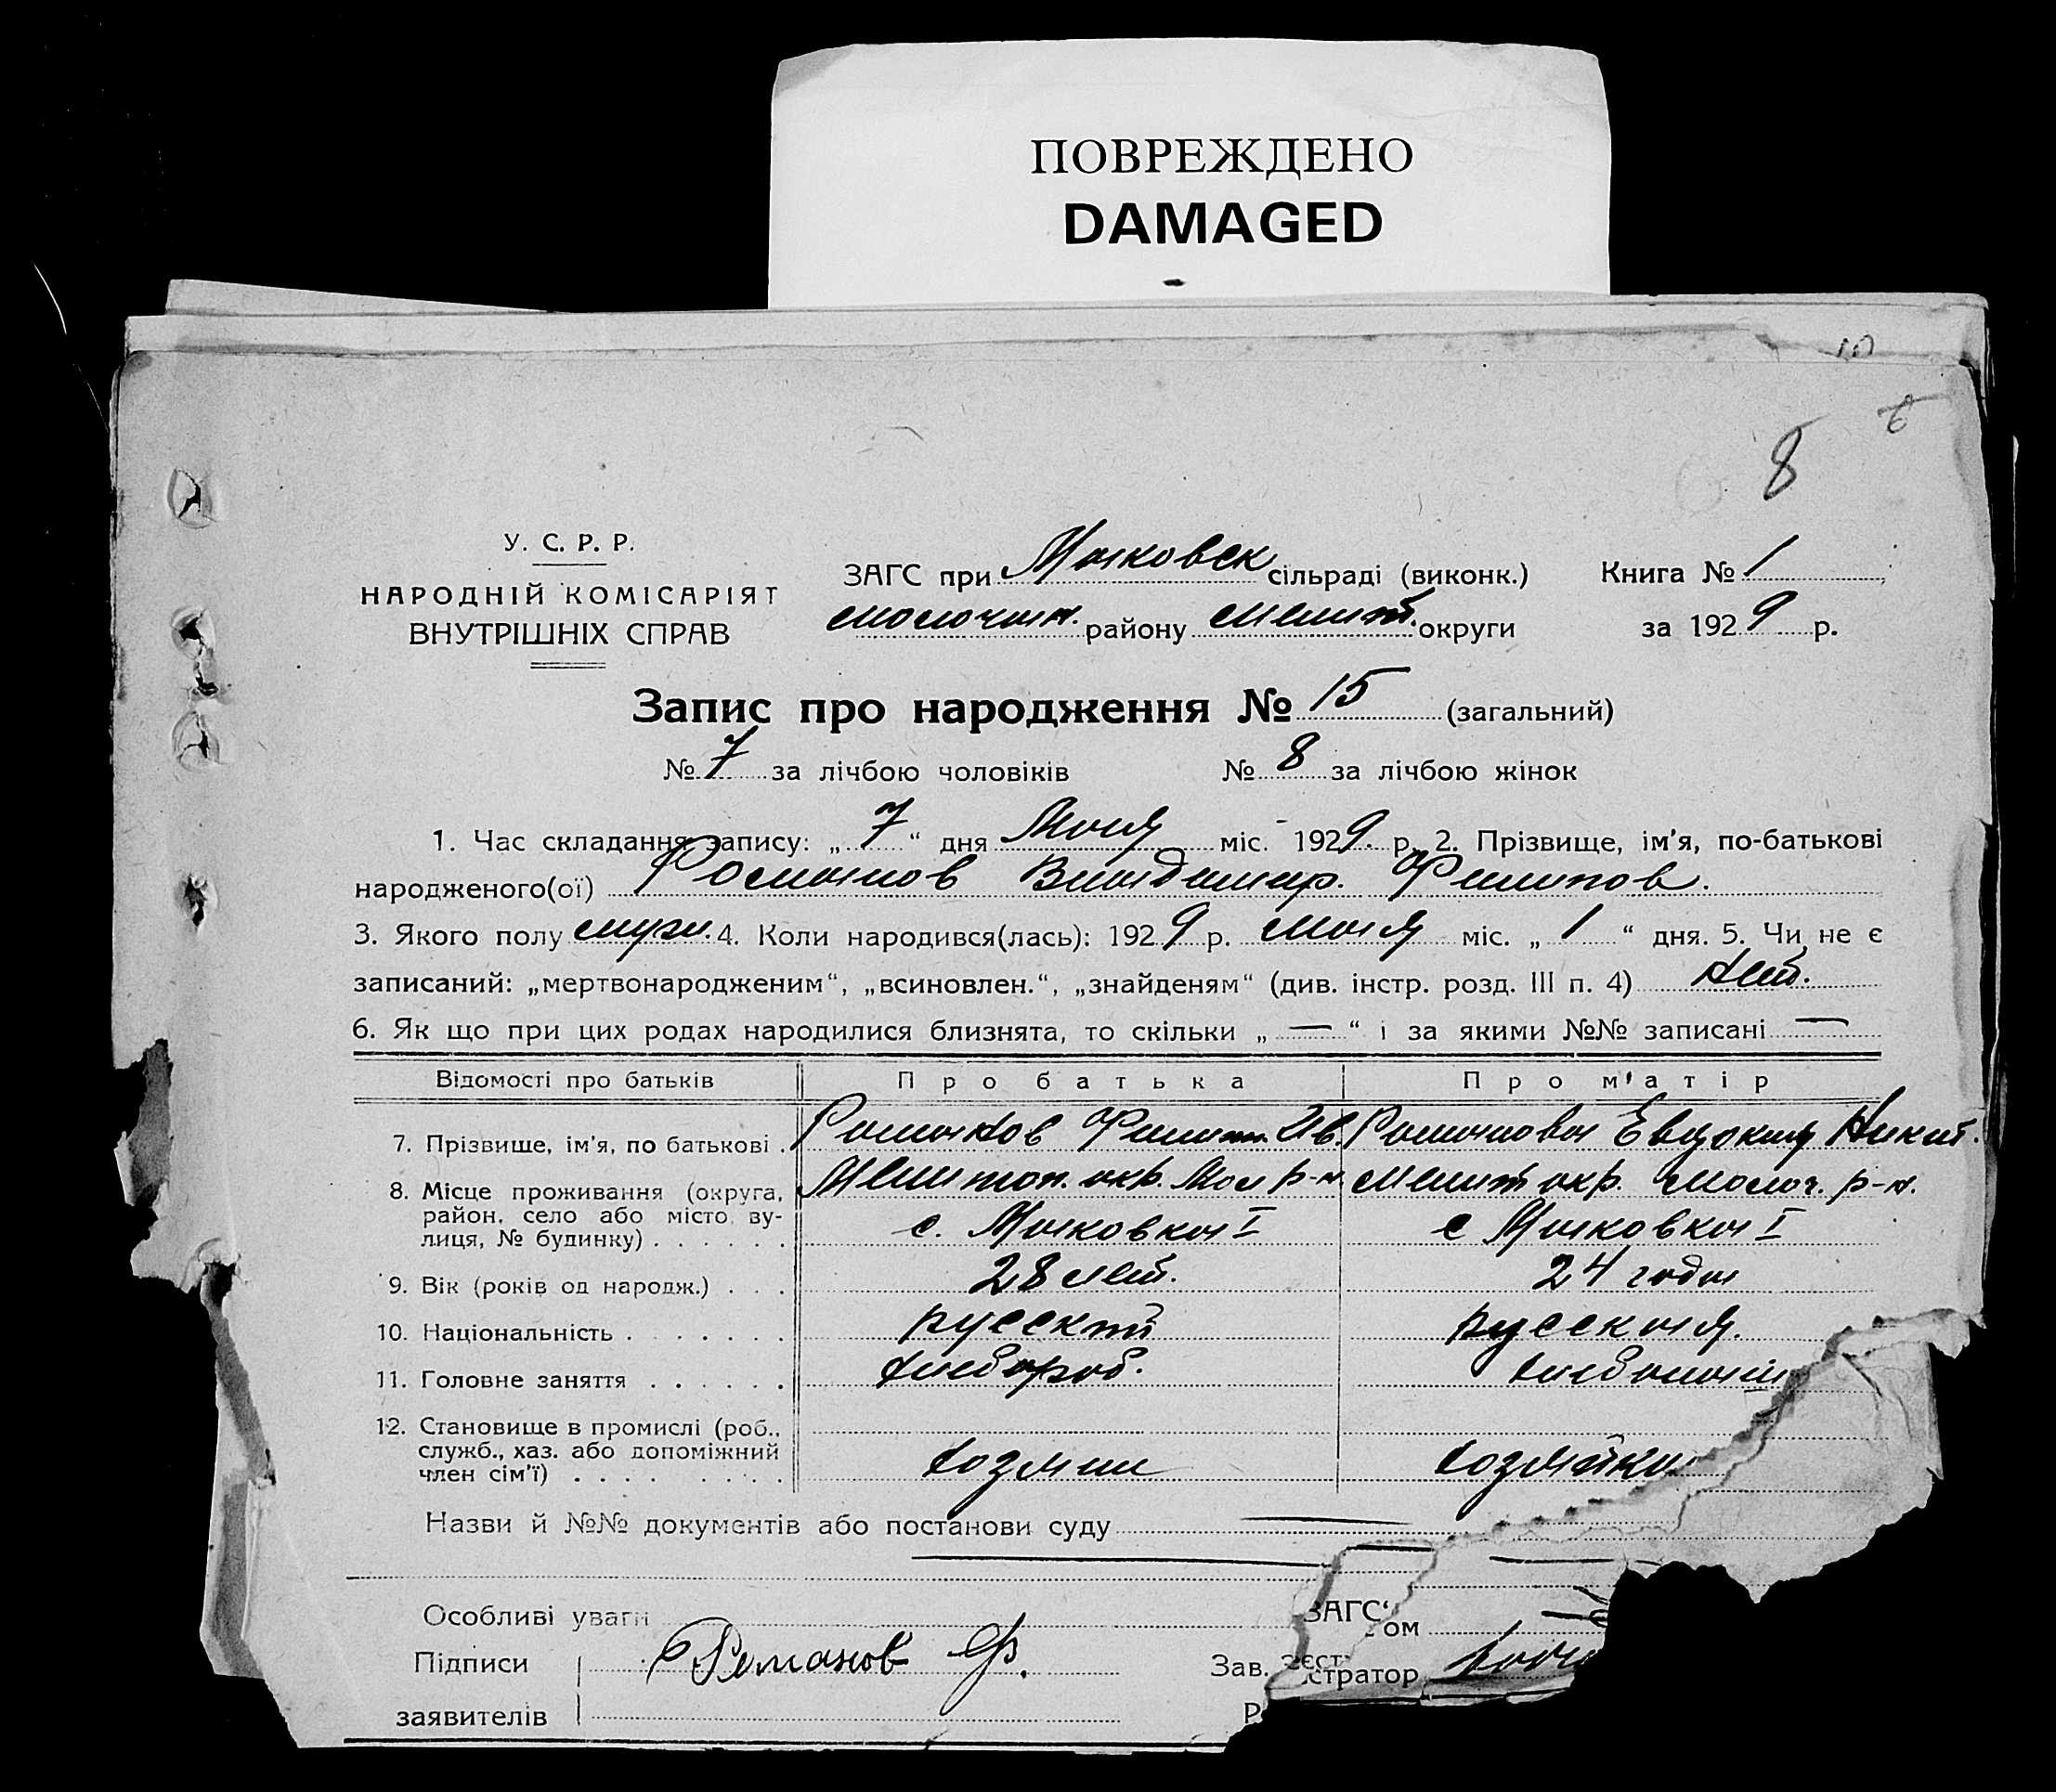 ПОВРЕЖДЕНО
DAMAGED
10
6
8
У. С. Р. Р.
НАРОДНІЙ КОМІСАРІЯТ
ВНУТРІШНІХ СПРАВ
ЗАГС при Маковск сільраді (виконк.) Книга № 1
Молочан. району Мелит. округи за 1929 р.
Запис про народження № 15 (загальний)
№ 7 за лічбою чоловіків № 8 за лічбою жінок
1. Час складання запису: „7“ дня Мая міс. 1929 р. 2. Прізвище, ім'я, по-батькові
народженого(ої) Романов Владимир. Филипов.
3. Якого полу муж. 4. Коли народився(лась): 1929 р. Мая міс. „1“ дня. 5. Чи не є
записаний: „мертвонародженим“, „всиновлен.“, „знайденям“ (див. інстр. розд. III п. 4) Нет.
6. Як що при цих родах народилися близнята, то скільки „—“ і за якими №№ записані —
Відомості про батьків Про батька Про м'атір
7. Прізвище, ім'я, по батькові . Романов Филип. Ив. Романова Евдокия Никит.
8. Місце проживання (округа, Мелитоп. окр. Мол р-н Мелит окр. Молоч. р-н.
район, село або місто, ву-
лиця, № будинку) . . . . . . с. Маковка I с Маковка I
9. Вік (років од народж.) . . . 28 лет. 24 года
10. Національність . . . . . . . русский русская.
11. Головне заняття . . . . . . хлебороб.
12. Становище в промислі (роб.,
служб., хаз. або допоміжний
член сім'ї) . . . . . . . . . хозяин хозяйка
Назви й №№ документів або постанови суду
Особливі уваги
ЗАГС'
ом
Підписи Романов Ф. Зав.
стратор
заявителів Р